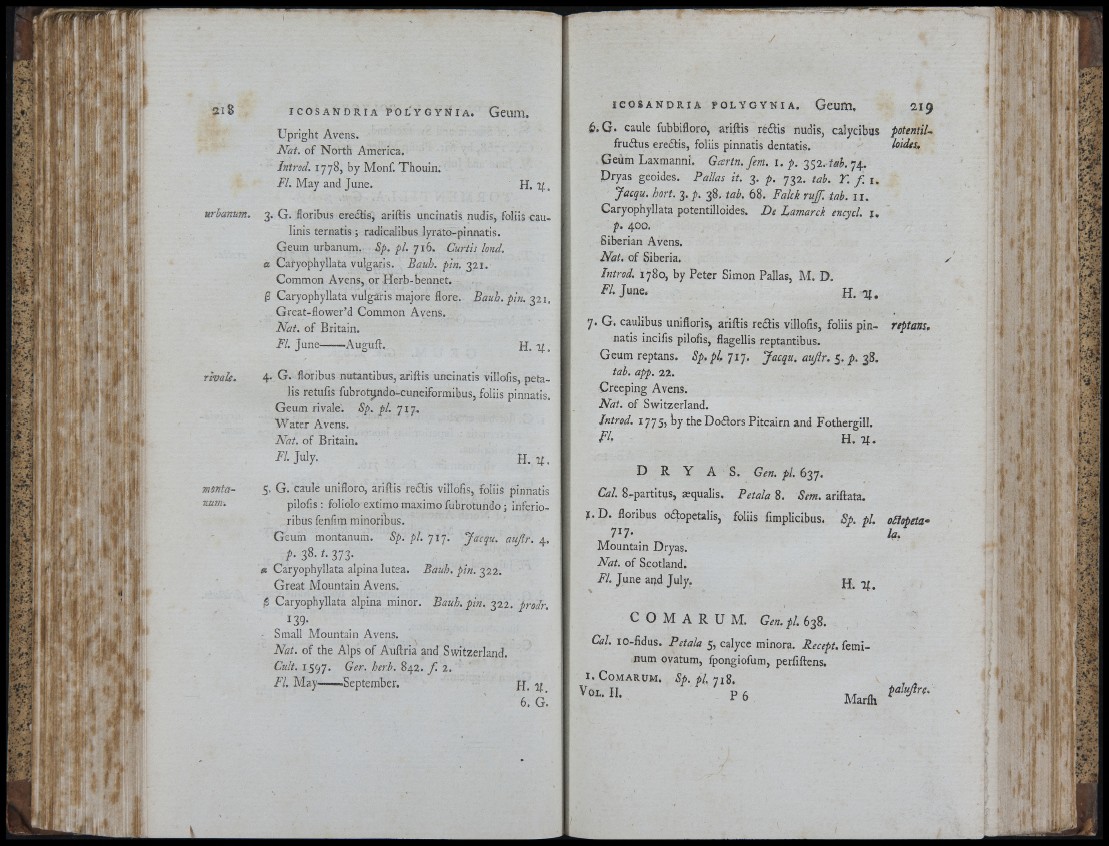 218 ICOSANDRIA POLYGYNIA. Geum.
Upright Avens.
Nat. of North America.
Introd. 1778, by Monſ. Thouin.
Fl. May and June. H. ♃.
urbanum. 3. G. floribus erectis, ariſtis uncinatis nudis, foliis cau-
linis ternatis; radicalibus lyrato-pinnatis.
Geum urbanum. Sp. pl. 716. Curtis lond.
α Caryophyllata vulgaris. Bauh. pin. 321.
Common Avens, or Herb-bennet.
β Caryophyllata vulgaris majore flore. Bauh. pin. 321.
Great-flower'd Common Avens.
Nat. of Britain.
Fl. June——Auguſt. H. ♃.
rivale. 4. G. floribus nutantibus, ariſtis uncinatis villoſis, peta-
lis retuſis ſubrotundo-cuneiformibus, foliis pinnatis.
Geum rivale. Sp. pl. 717.
Water Avens.
Nat. of Britain.
Fl. July. H. ♃.
monta- 5. G. caule unifloro, ariſtis rectis villoſis, foliis pinnatis
num. piloſis: foliolo extimo maximo ſubrotundo; inferio-
ribus ſenſim minoribus.
Geum montanum. Sp. pl. 717. Jacqu. auſtr. 4.
p. 38. t. 373.
α Caryophyllata alpina lutea. Bauh. pin. 322.
Great Mountain Avens.
β Caryophyllata alpina minor. Bauh. pin. 322. prodr.
139.
Small Mountain Avens.
Nat. of the Alps of Auſtria and Switzerland.
Cult. 1597. Ger. herb. 842. f. 2.
Fl. May——September. H. ♃.
6. G.
ICOSANDRIA POLYGYNIA. Geum. 219
6. G. caule ſubbifloro, ariſtis rectis nudis, calycibus potentil-
fructus erectis, foliis pinnatis dentatis. loides.
Geum Laxmanni. Gærtn. ſem. 1. p. 352. tab. 74.
Dryas geoides. Pallas it. 3. p. 732. tab. Y. f. 1.
Jacqu. hort. 3. p. 38. tab. 68. Falck ruſſ. tab. 11.
Caryophyllata potentilloides. De Lamarck encycl. 1.
p. 400.
Siberian Avens.
Nat. of Siberia.
Introd. 1780, by Peter Simon Pallas, M. D.
Fl. June. H. ♃.
7. G. caulibus unifloris, ariſtis rectis villoſis, foliis pin- reptans.
natis inciſis piloſis, flagellis reptantibus.
Geum reptans. Sp. pl. 717. Jacqu. auſtr. 5. p. 38.
tab. app. 22.
Creeping Avens.
Nat. of Switzerland.
Introd. 1775, by the Doctors Pitcairn and Fothergill.
Fl. H. ♃.
DRYAS. Gen. pl. 637.
Cal. 8-partitus, æqualis. Petala 8. Sem. ariſtata.
1. D. floribus octopetalis, foliis ſimplicibus. Sp. pl. octopeta-
717. la.
Mountain Dryas.
Nat. of Scotland.
Fl. June and July. H. ♃.
COMARUM. Gen. pl. 638.
Cal. 10-fidus. Petala 5, calyce minora. Recept. ſemi-
num ovatum, ſpongioſum, perſiſtens.
1. COMARUM. Sp. pl. 718. paluſtre.
VOL. II. P 6 Marſh